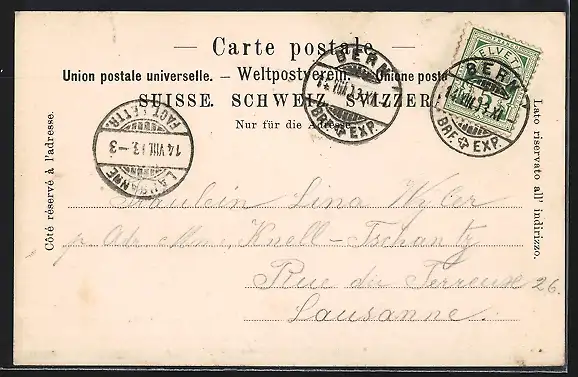 Carte postale
Union postale universelle. — Weltpostverein. — Unione posta
SUISSE. SCHWEIZ. SVIZZERA
Nur für die Adresse.
Côté réservé à l'adresse.
Lato riservato all' indirizzo.
HELVETIA
BERN
14.VIII.03.XI
BRF. EXP.
BERN
14.VIII.03.XI
BRF. EXP.
LAUSANNE
14.VIII.03.–3
FACT. LETTR.
Fräulein Lina Wyler
p. Adr. Mme. Knell-Tschantz
Rue du Terreaux 26.
Lausanne.